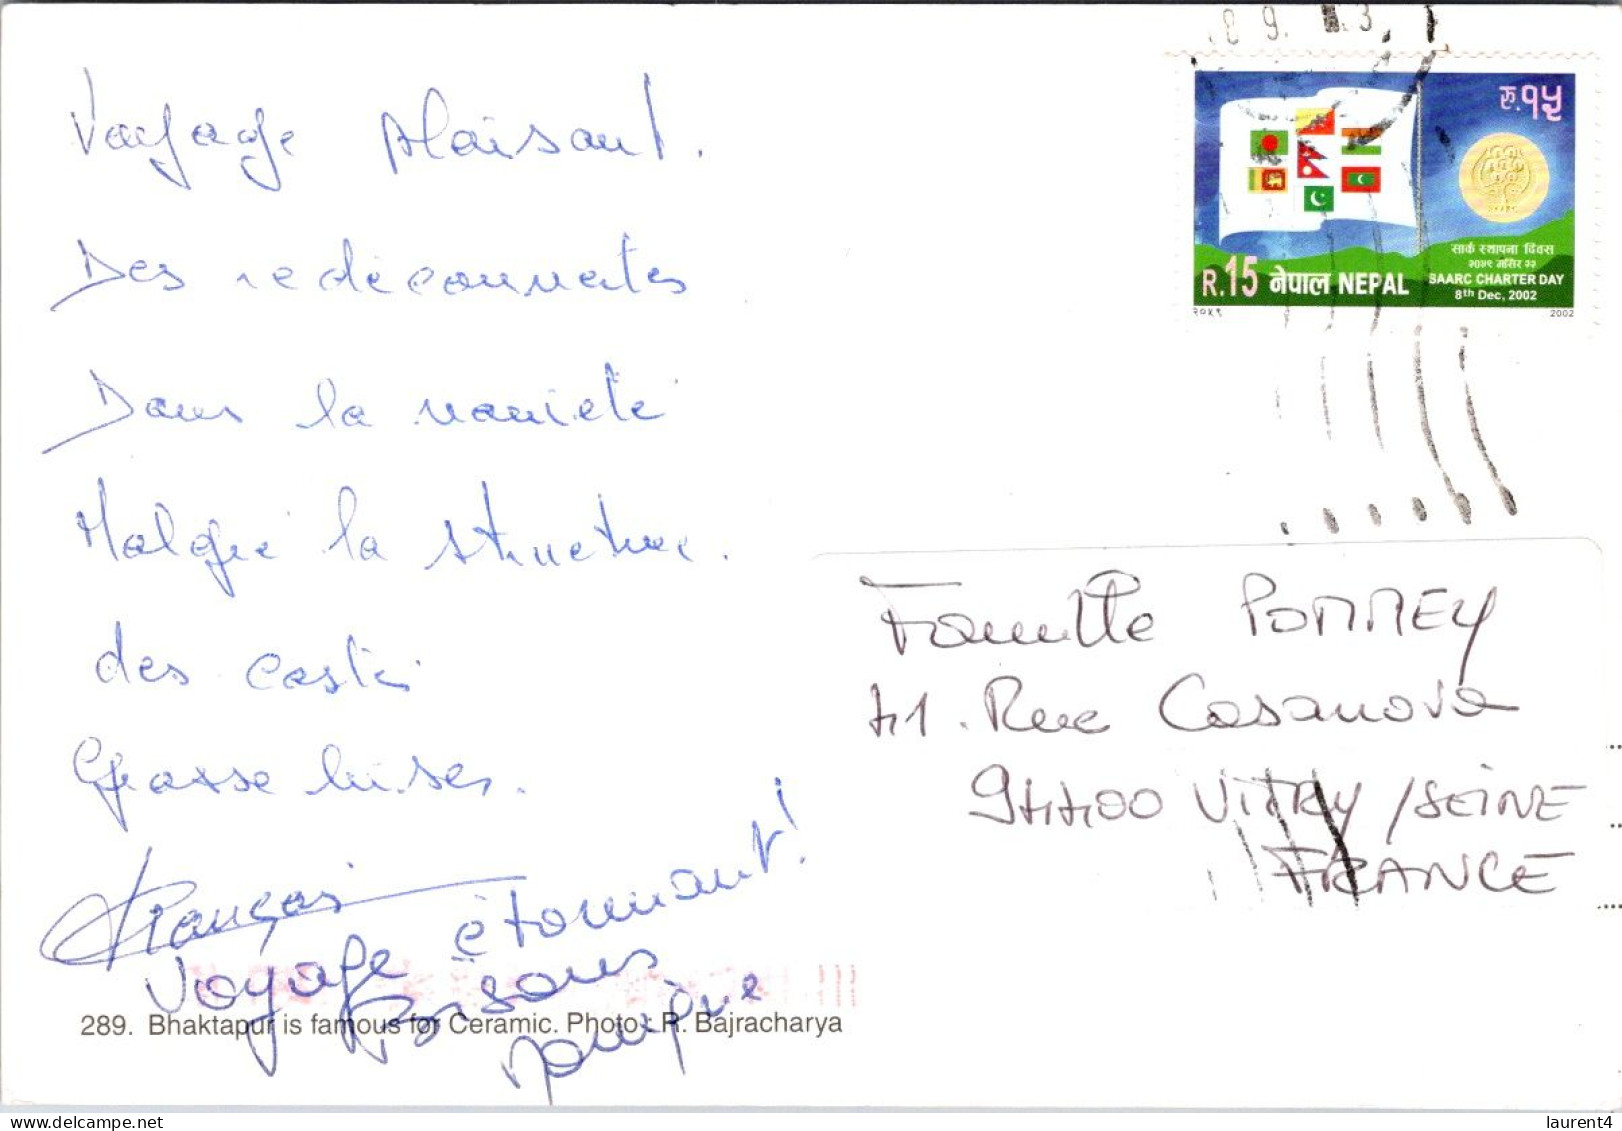 Voyage plaisant.
Des redécouvertes
Dans la variété
Malgré la structure.
des castes
Grosse bises.
François
Voyage étonnant!
Bisous
रु.१५
सार्क स्थापना दिवस
२०५९ मंसिर २२
SAARC CHARTER DAY
8th Dec, 2002
R.15 नेपाल NEPAL
२०५९ 2002
Famille POMMEY
41. Rue Casanova
94400 VITRY/SEINE
FRANCE
289. Bhaktapur is famous for Ceramic. Photo: R. Bajracharya
laurent4